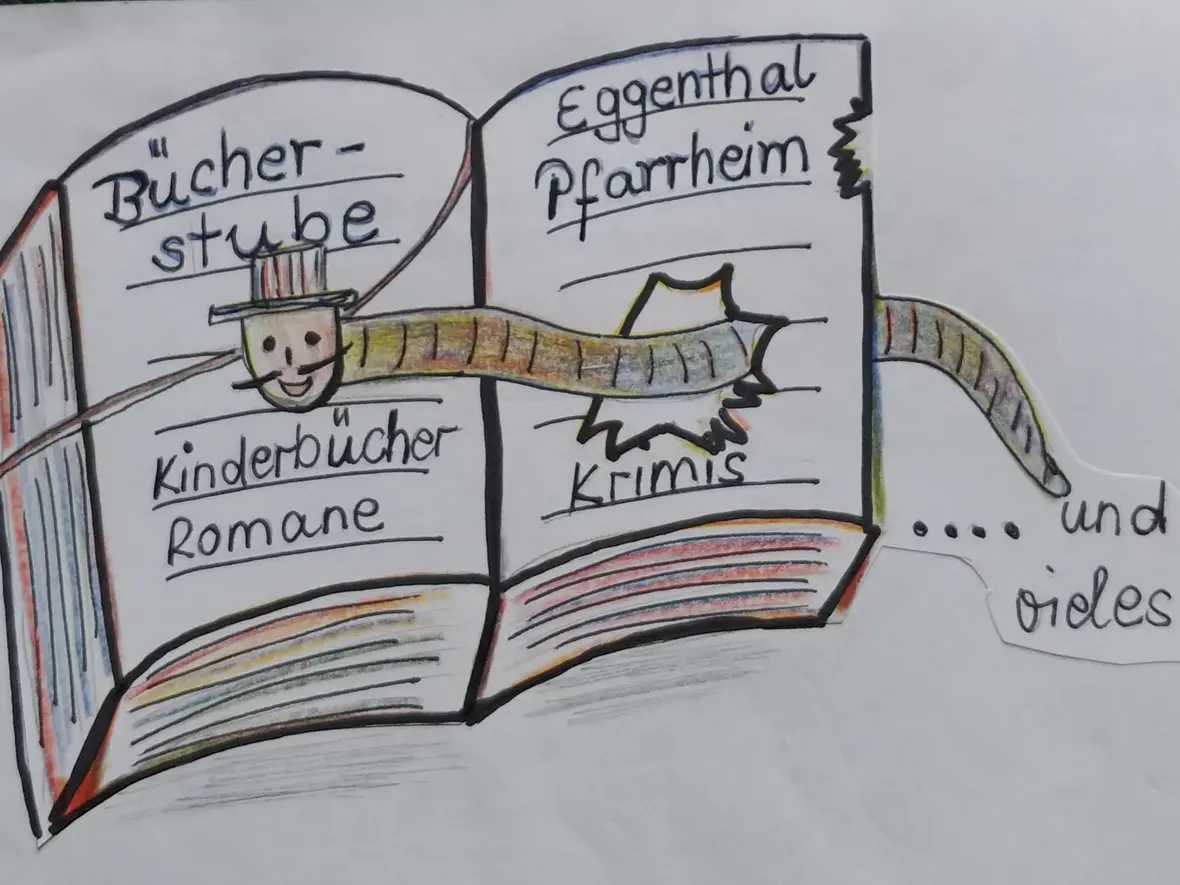 Bücher-
stube
Kinderbücher
Romane
Eggenthal
Pfarrheim
Krimis
.... und